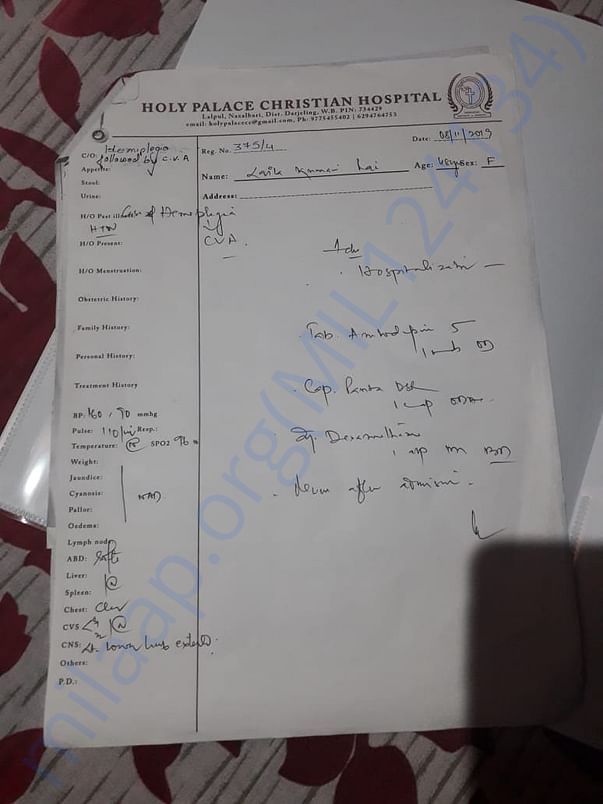 HOLY PALACE CHRISTIAN HOSPITAL
Lalpul, Naxalbari, Dist. Darjeling, W.B. PIN: 734429
email: holypalacece@gmail.com, Ph: 9775455402 | 6294764753
Reg. No. 375/4
Date: 08/11/2019
Name: Kumari Rai
Age: Sex: F
Address:
C/O: Hemiplegia
followed by C.V.A
Appetite:
Stool:
Urine:
H/O Past illness: Case of Hemiplegia
HTN
CVA
H/O Present:
H/O Menstruation:
Obstetric History:
Family History:
Personal History:
Treatment History
BP: 160 / 90 mmhg
Pulse: 110/ Resp.:
Temperature: SPO2 96
Weight:
Jaundice:
Cyanosis: NAD
Pallor:
Oedema:
Lymph node
ABD: Soft
Liver:
Spleen:
Chest: Clear
CVS
CNS: Lt. lower limb
Others:
P.D.:
Adv
Hospitalization
Tab. Amlodepin 5
OD
Cap. Panta DSR
1 cap
BD
after
milaap.org(MIL124134)